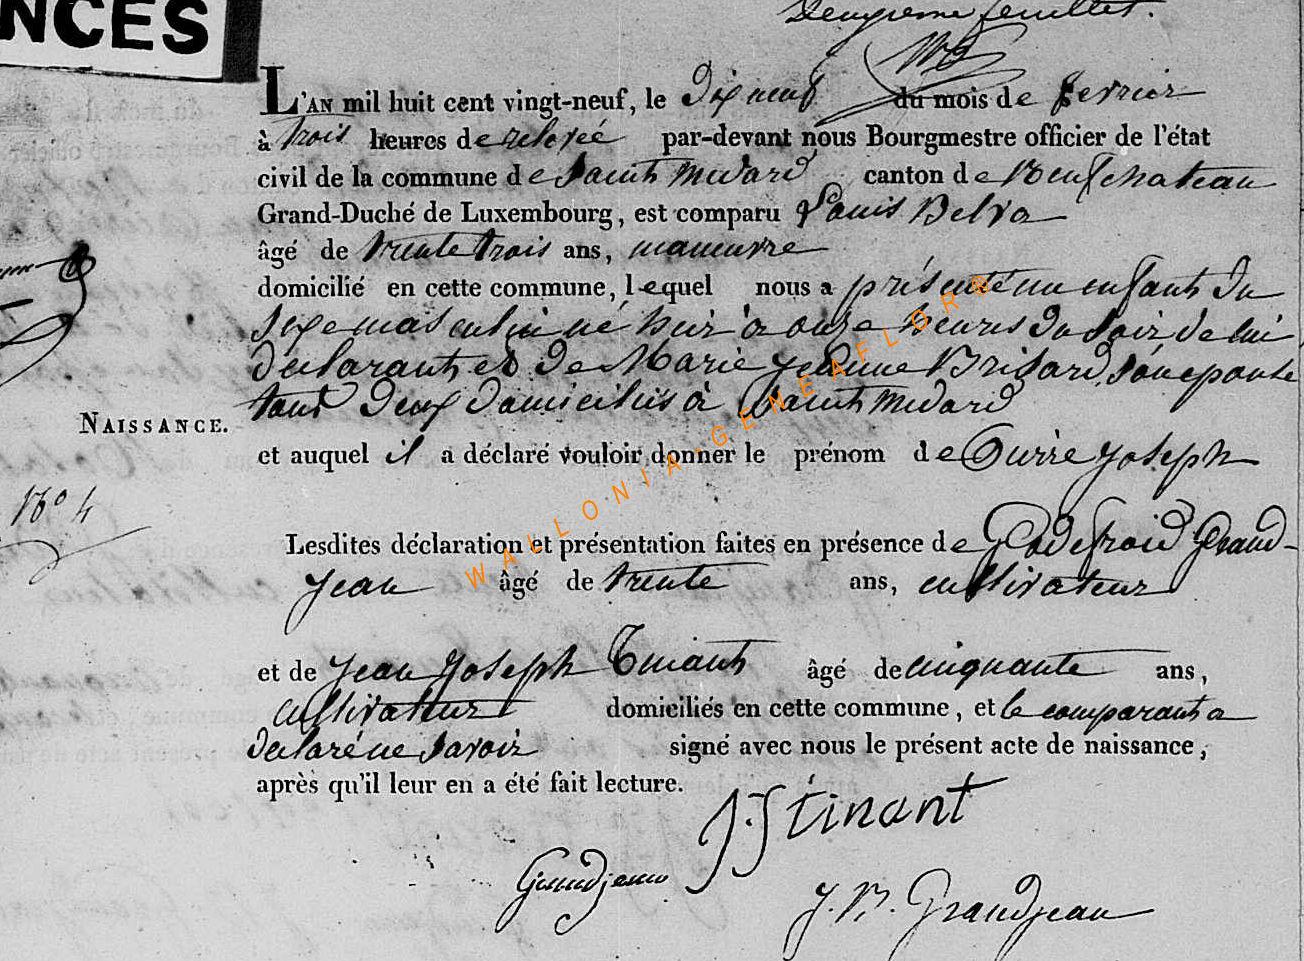 NCES
Deuxieme feuillet.
L'AN mil huit cent vingt-neuf, le Dix neuf du mois de fevrier
à trois heures de relevée par-devant nous Bourgmestre officier de l'état
civil de la commune de Saint Medard canton de Neufchateau
Grand-Duché de Luxembourg, est comparu Louis Belva
âgé de trente trois ans, maneuvre
domicilié en cette commune, lequel nous a présenté un enfant du
sexe masculin né hier à onze heures du soir de lui
declarant et de Marie Jeanne Brisard son epouse
tous deux domiciliés à Saint Medard
NAISSANCE.
et auquel il a déclaré vouloir donner le prénom de Pierre Joseph
No 4
Lesdites déclaration et présentation faites en présence de Godefroid Grand-
jean âgé de trente ans, cultivateur
et de Jean Joseph Tinant âgé de cinquante ans,
cultivateur domiciliés en cette commune, et le comparant a
declaré ne savoir signé avec nous le présent acte de naissance,
après qu'il leur en a été fait lecture.
J. J Tinant
Grandjean
J. B. Grandjean
WALLONIA-GENEAFLOR